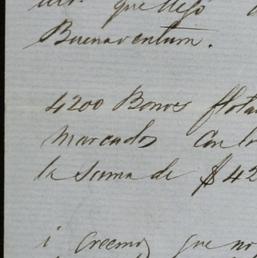 que llegó
Buenaventura.
4200 Bonos flota
marcados con lo
la Suma de $42
i creemos que no